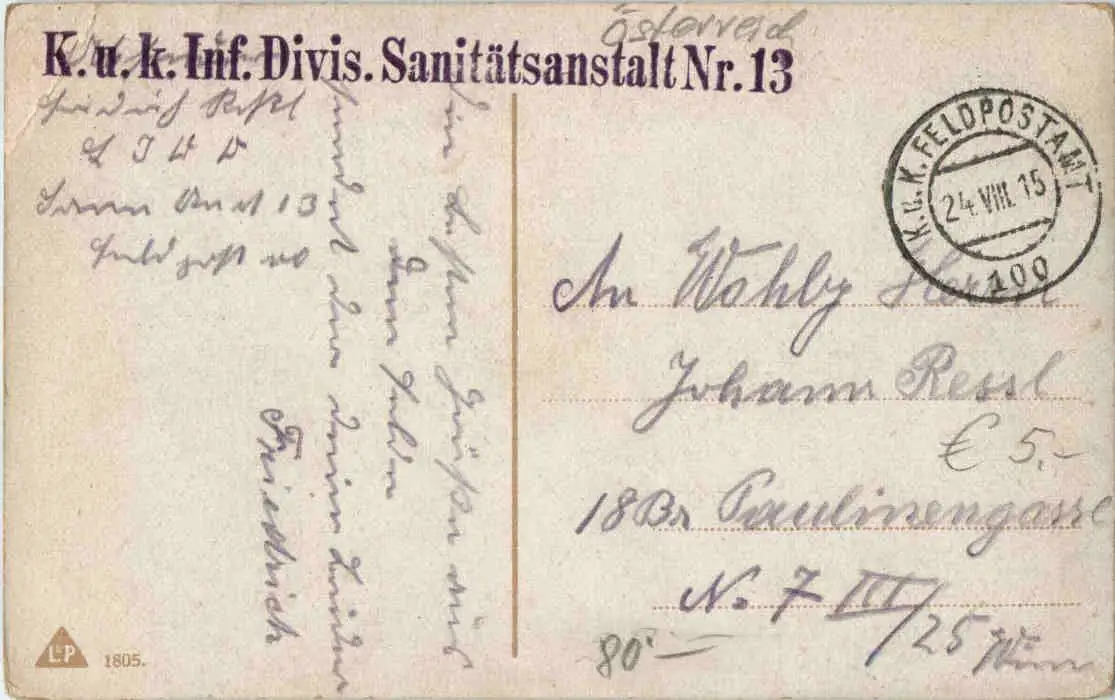 Österreich
K. u. k. Inf. Divis. Sanitätsanstalt Nr. 13
Friedrich Reßl
Sann Anst 13
Feldpost
Die besten Grüße aus
dem Felde
sendet dir dein Bruder
Friedrich
K.u.K. FELDPOSTAMT
24.VIII.15
100
An Wohlby Herrn
Johann Ressl
€ 5.-
18 Bz Paulinengasse
No 7 III/25 Wien
80 —
L&P 1805.